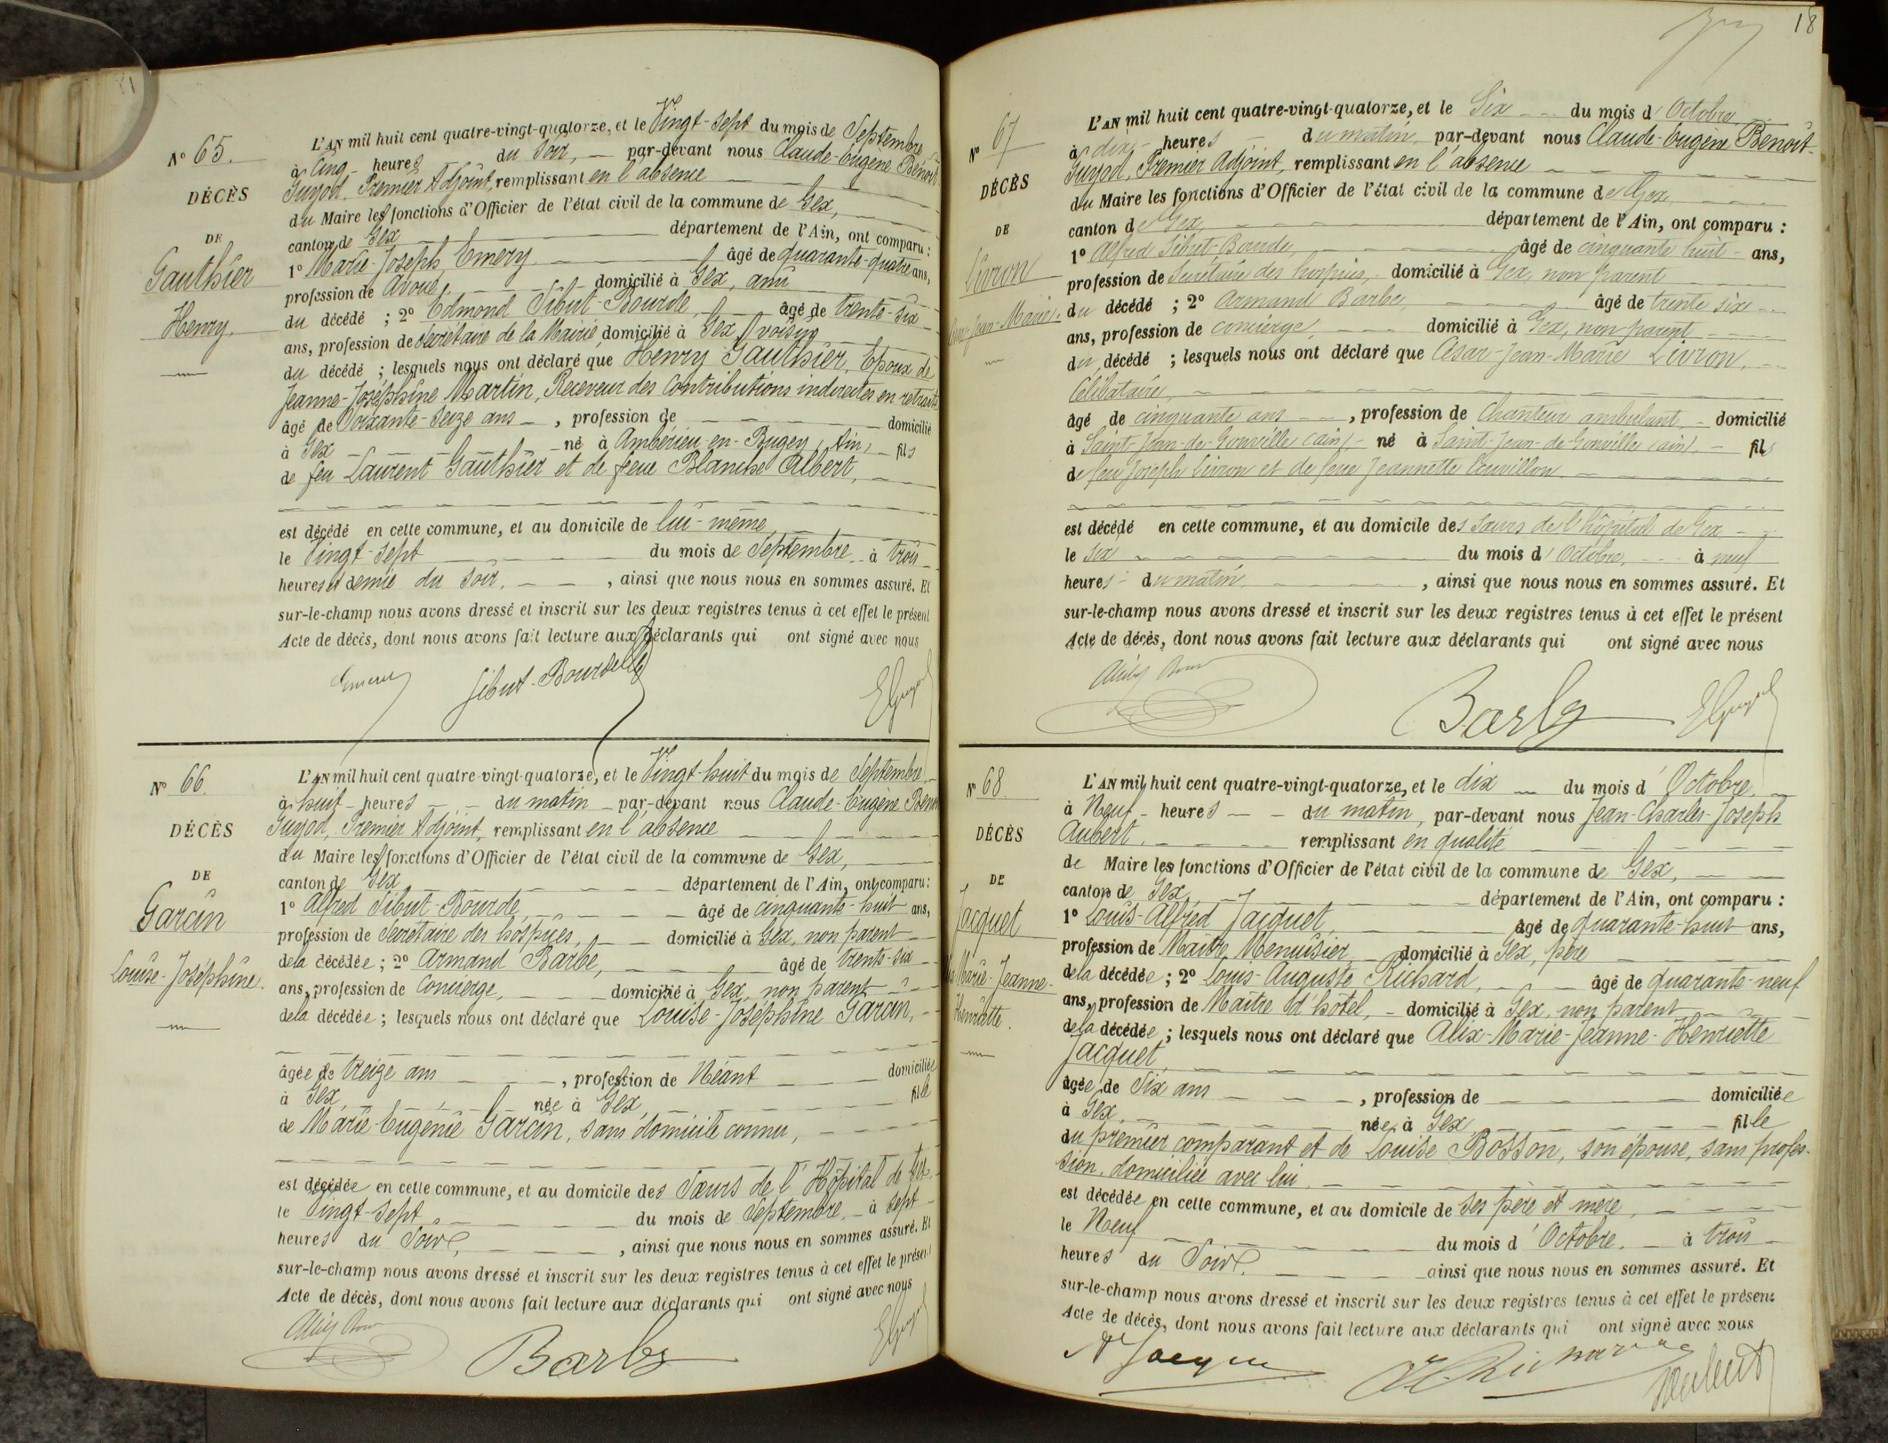 18
N° 65.
DÉCÈS
DE
Gauthier
Henry.
L'AN mil huit cent quatre-vingt-quatorze, et le Vingt-sept du mois de Septembre
à Cinq heures du Soir, par-devant nous Claude-Eugène Benoit
Guyod, Premier Adjoint, remplissant en l'absence
du Maire les fonctions d'Officier de l'état civil de la commune de Gex,
canton de Gex département de l'Ain, ont comparu :
1° Marie-Joseph Emery âgé de quarante-quatre ans,
profession de Avoué, domicilié à Gex, ami
du décédé ; 2° Edmond Sibut-Bourde, âgé de trente-six
ans, profession de Secrétaire de la Mairie, domicilié à Gex, voisin
du décédé ; lesquels nous ont déclaré que Henry Gauthier, Epoux de
Jeanne-Joséphine Martin, Receveur des Contributions indirectes en retraite
âgé de Soixante-seize ans, profession de domicilié
à Gex né à Ambérieu-en-Bugey (Ain) fils
de feu Laurent Gauthier et de feue Blanche Albert,
est décédé en cette commune, et au domicile de lui-même
le Vingt-sept du mois de Septembre à trois
heures et demie du soir, ainsi que nous nous en sommes assuré. Et
sur-le-champ nous avons dressé et inscrit sur les deux registres tenus à cet effet le présent
Acte de décès, dont nous avons fait lecture aux déclarants qui ont signé avec nous
Emery Sibut-Bourde EGuyod
N° 66.
DÉCÈS
DE
Garcin
Louise-Joséphine.
L'AN mil huit cent quatre-vingt-quatorze, et le Vingt-huit du mois de Septembre
à huit heures du matin par-devant nous Claude-Eugène Benoit
Guyod, Premier Adjoint, remplissant en l'absence
du Maire les fonctions d'Officier de l'état civil de la commune de Gex,
canton de Gex département de l'Ain, ont comparu :
1° Alfred Sibut-Bourde âgé de cinquante-huit ans,
profession de Secrétaire des hospices, domicilié à Gex, non parent
de la décédée ; 2° Armand Barbe, âgé de trente-six
ans, profession de Concierge, domicilié à Gex, non parent
de la décédée ; lesquels nous ont déclaré que Louise-Joséphine Garcin,
âgée de treize ans, profession de Néant domiciliée
à Gex née à Gex fille
de Marie-Eugénie Garcin, sans domicile connu,
est décédée en cette commune, et au domicile des Sœurs de l'Hôpital de Gex
le Vingt-sept du mois de Septembre à sept
heures du Soir, ainsi que nous nous en sommes assuré. Et
sur-le-champ nous avons dressé et inscrit sur les deux registres tenus à cet effet le présent
Acte de décès, dont nous avons fait lecture aux déclarants qui ont signé avec nous
Barbe EGuyod
N° 67
DÉCÈS
DE
Livron
César-Jean-Marie.
L'AN mil huit cent quatre-vingt-quatorze, et le Six du mois d'Octobre
à dix heures du matin par-devant nous Claude-Eugène Benoit
Guyod, Premier Adjoint, remplissant en l'absence
du Maire les fonctions d'Officier de l'état civil de la commune de Gex
canton de Gex département de l'Ain, ont comparu :
1° Alfred Sibut-Bourde, âgé de cinquante huit ans,
profession de Secrétaire des hospices, domicilié à Gex, non parent
du décédé ; 2° Armand Barbe, âgé de trente six
ans, profession de concierge domicilié à Gex, non parent
du décédé ; lesquels nous ont déclaré que César-Jean-Marie Livron,
Célibataire,
âgé de cinquante ans, profession de Chanteur ambulant, domicilié
à Saint-Jean-de-Gonville (Ain), né à Saint-Jean-de-Gonville (Ain) fils
de feu Joseph Livron et de feue Jeannette
est décédé en cette commune, et au domicile des sœurs de l'hôpital de Gex
le six du mois d'Octobre, à neuf
heures du matin, ainsi que nous nous en sommes assuré. Et
sur-le-champ nous avons dressé et inscrit sur les deux registres tenus à cet effet le présent
Acte de décès, dont nous avons fait lecture aux déclarants qui ont signé avec nous
Barbe EGuyod
N° 68
DÉCÈS
DE
Jacquet
Alix-Marie-Jeanne-
Henriette.
L'AN mil huit cent quatre-vingt-quatorze, et le dix du mois d'Octobre
à Neuf heures du matin, par-devant nous Jean-Charles-Joseph
Aubert remplissant en qualité
de Maire les fonctions d'Officier de l'état civil de la commune de Gex,
canton de Gex département de l'Ain, ont comparu :
1° Louis-Alfred Jacquet âgé de quarante-huit ans,
profession de Maître Menuisier domicilié à Gex, père
de la décédée ; 2° Louis-Auguste Richard, âgé de quarante-neuf
ans, profession de Maître d'hôtel, domicilié à Gex, non parent
de la décédée ; lesquels nous ont déclaré que Alix-Marie-Jeanne-Henriette
Jacquet
âgée de Six ans, profession de domiciliée
à Gex née à Gex fille
du premier comparant et de Louise Bosson, son épouse, sans profes-
sion, domiciliée avec lui,
est décédée en cette commune, et au domicile de ses père et mère,
le Neuf du mois d'Octobre, à trois
heures du Soir, ainsi que nous nous en sommes assuré. Et
sur-le-champ nous avons dressé et inscrit sur les deux registres tenus à cet effet le présent
Acte de décès, dont nous avons fait lecture aux déclarants qui ont signé avec nous
A Jacquet Richard Aubert